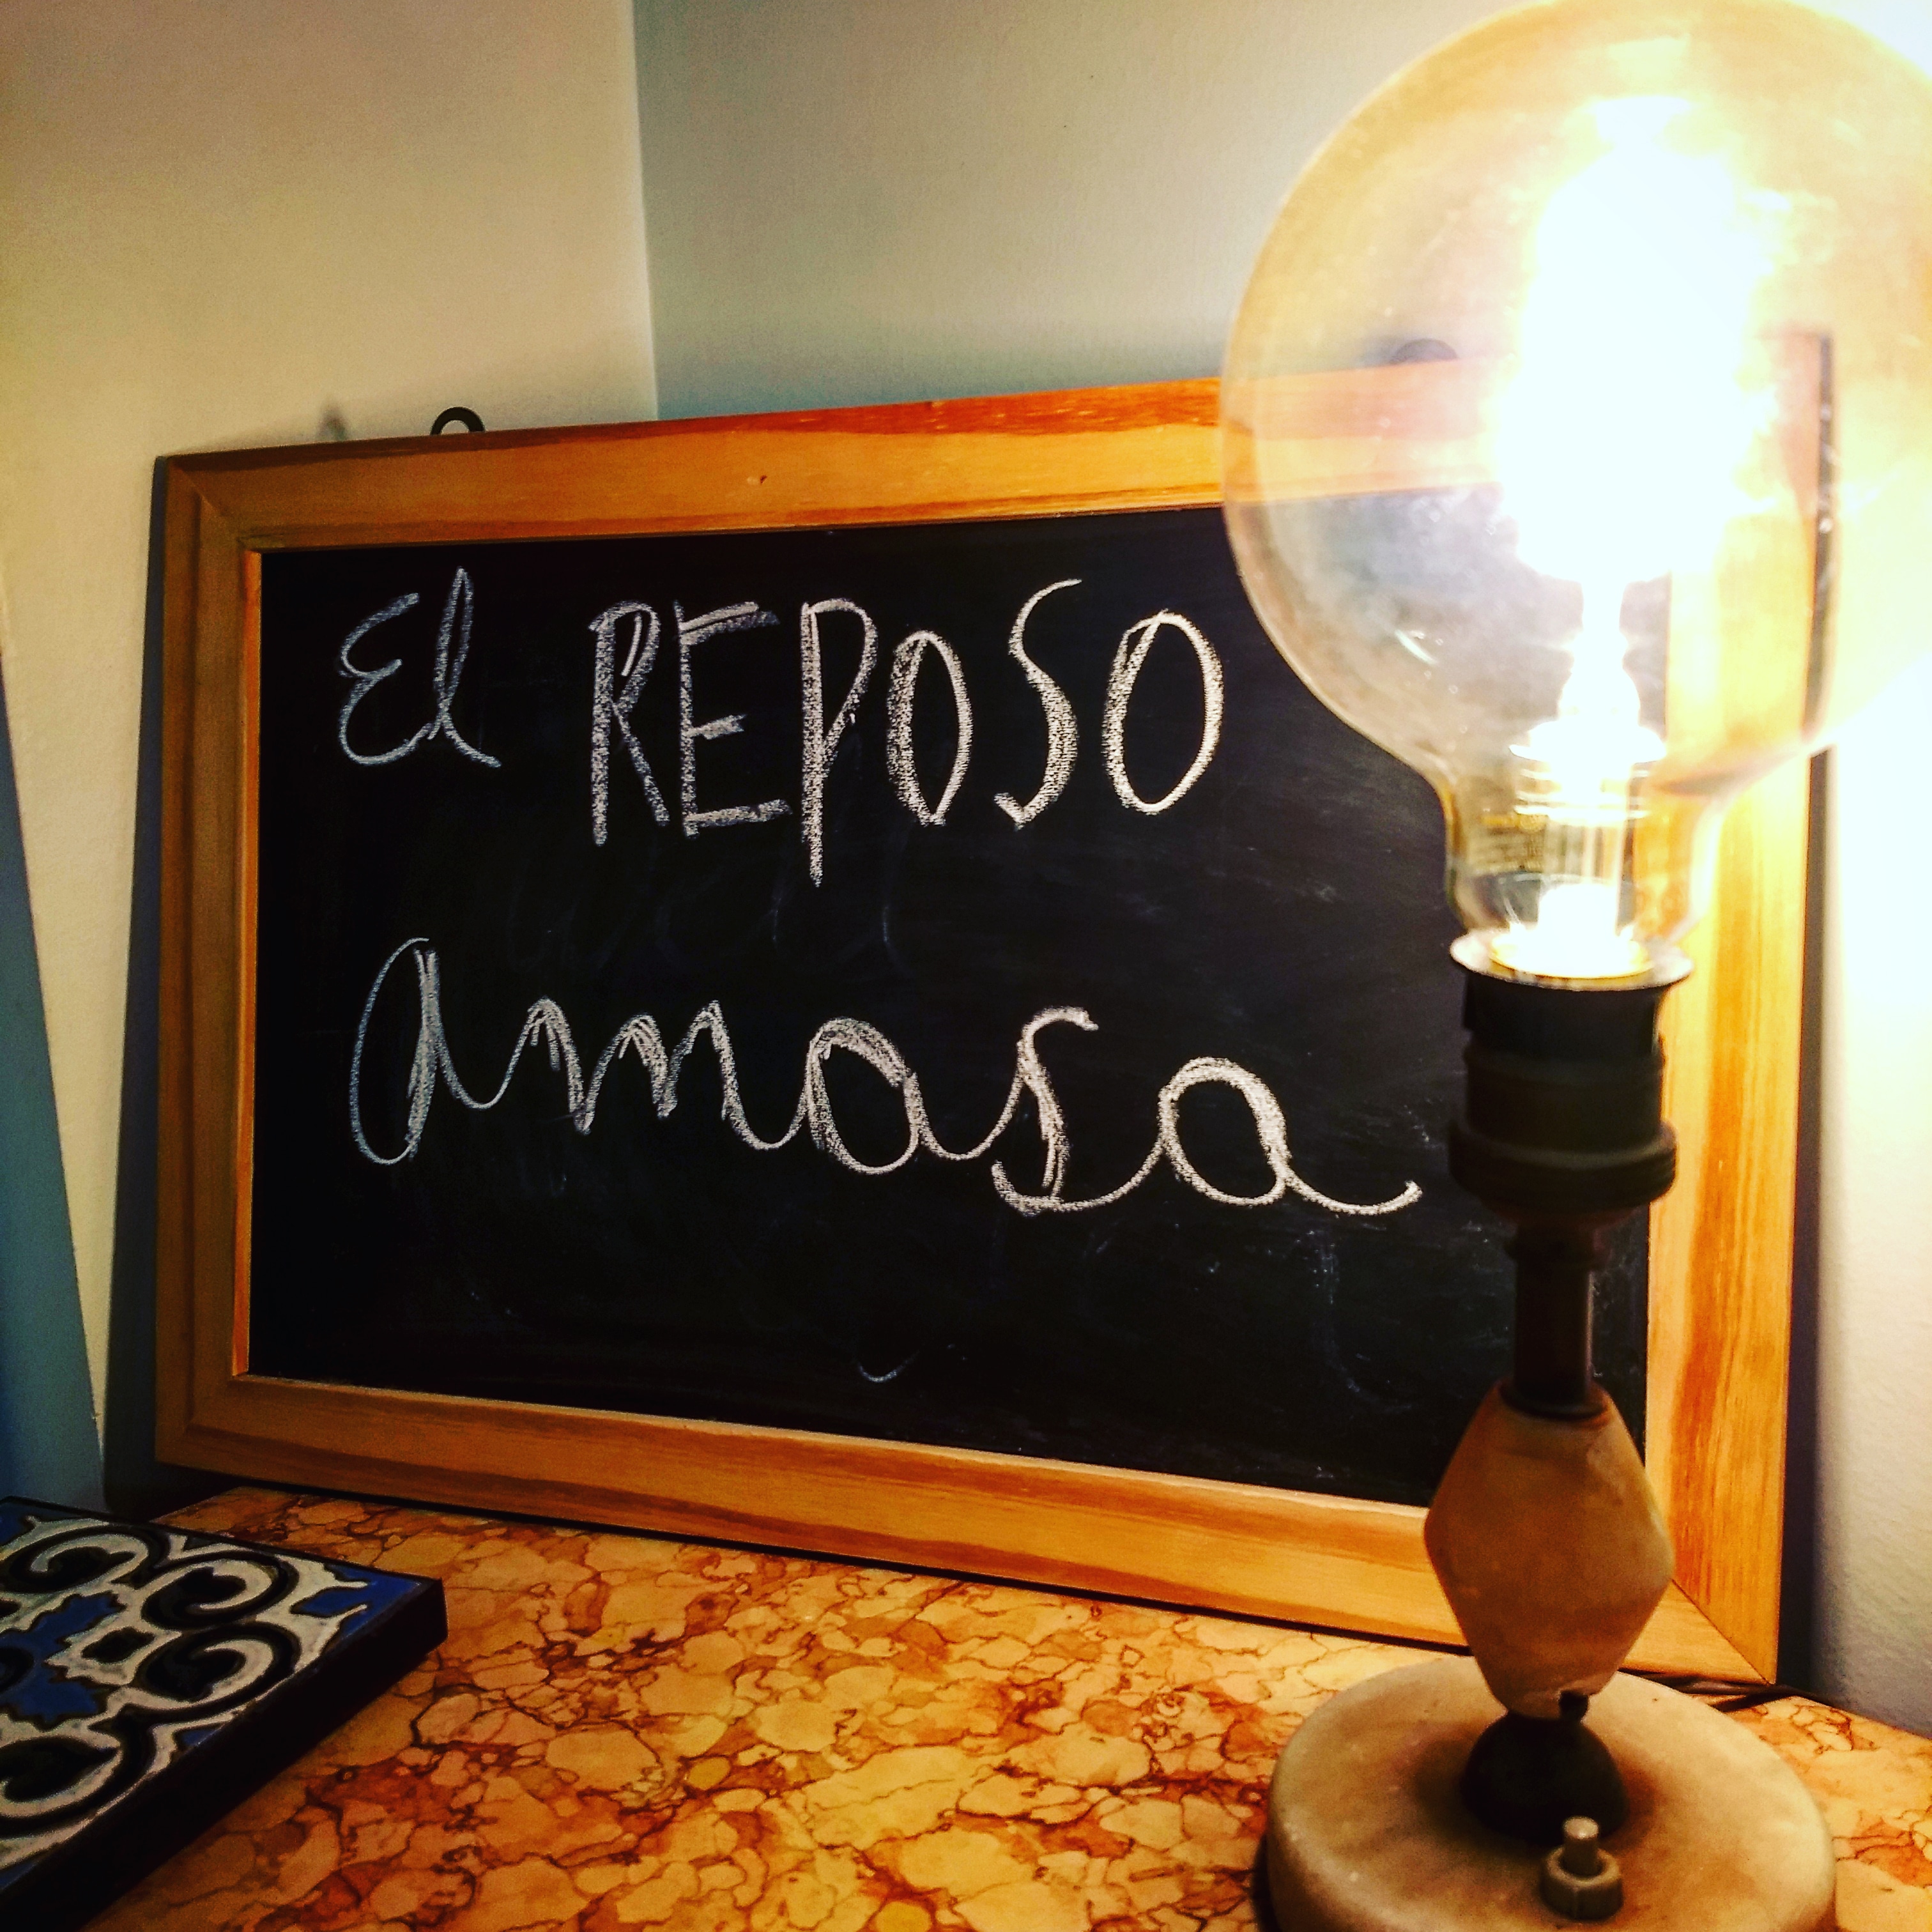 El REPOSO
amasa